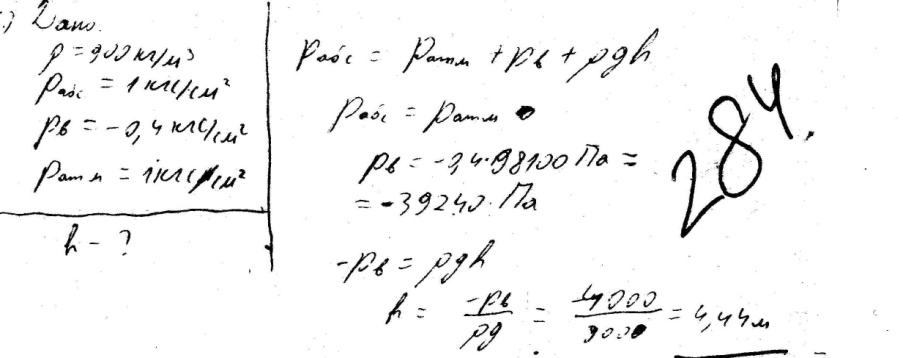 Дано.
ρ = 900 кг/м³
Pабс = 1 кгс/см²
pв = -0,4 кгс/см²
Pатм = 1 кгс/см²
h - ?
Pабс = Pатм + pв + ρgh
Pабс = Pатм
pв = -0,4·98100 Па =
= -39240 Па
-pв = ρgh
h = -pв/ρg = /9000 = 4,44 м
284.